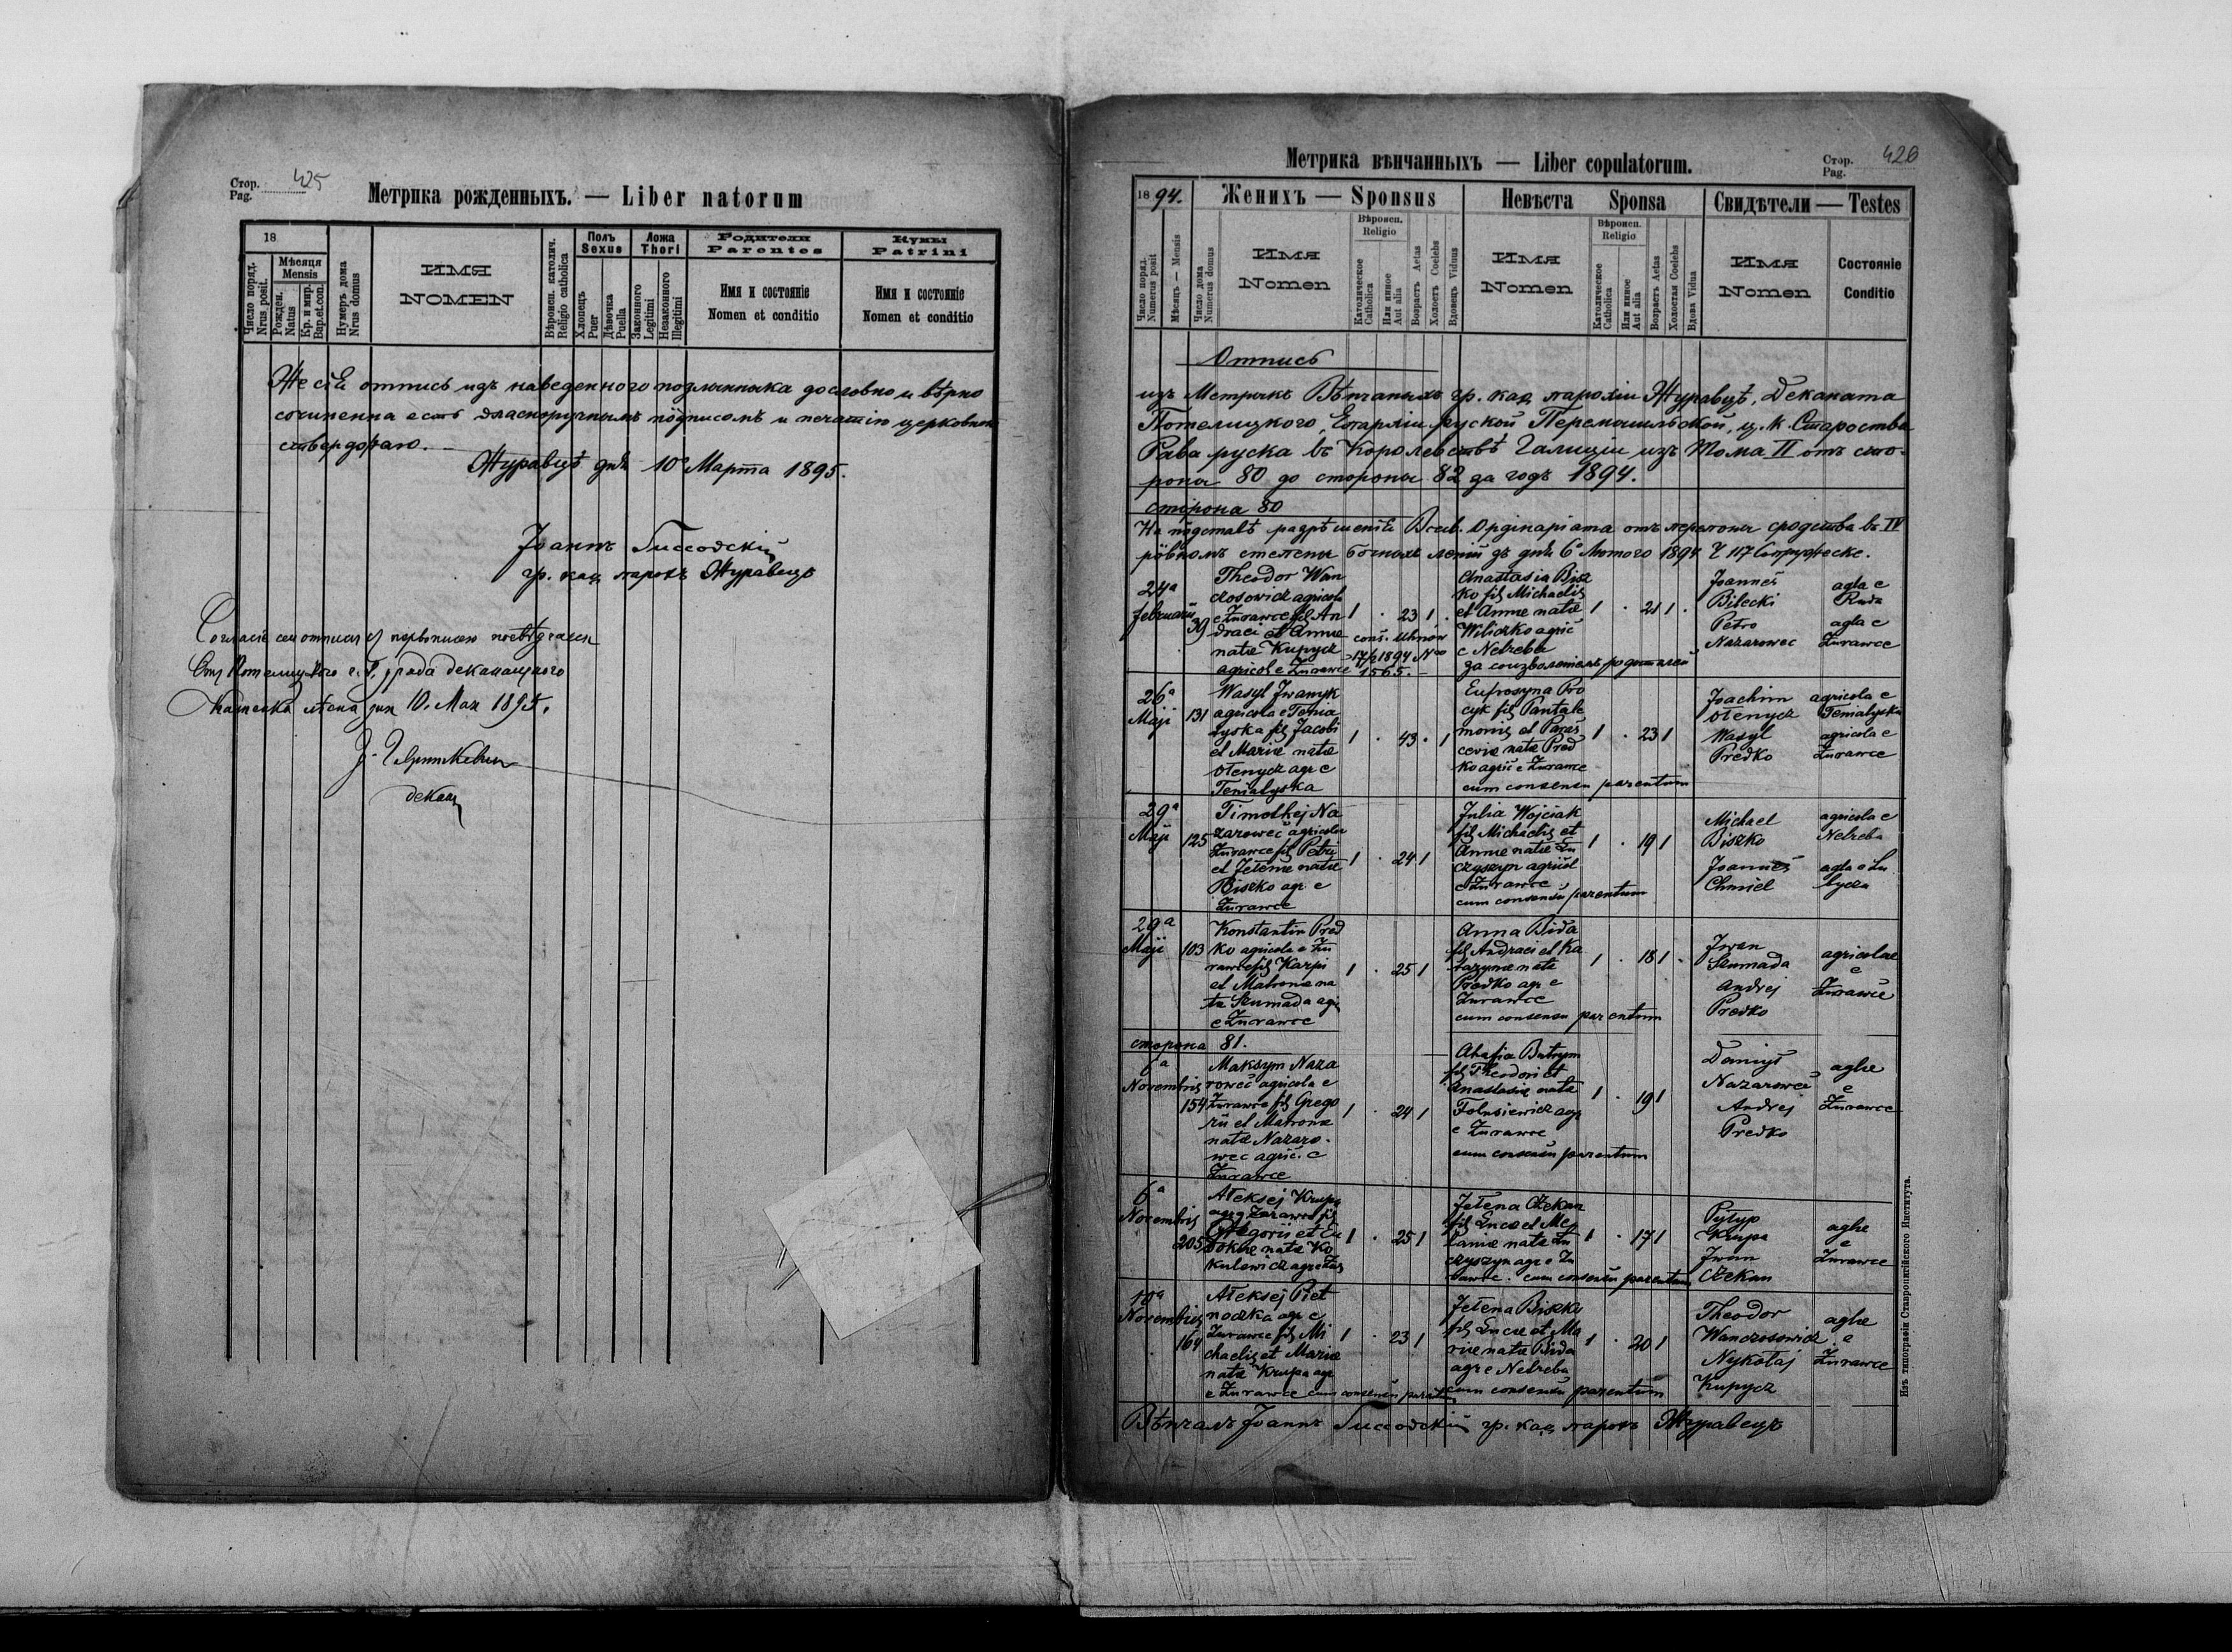 Стор. 425
Pag.
Метрика рожденныхъ. — Liber natorum
18
Число поряд.
Nrus posit.
Мѣсяця
Mensis
Рожден.
Natus
Кр. и мир.
Bap. et con.
Нумеръ дома
Nrus domus
ИМЯ
NOMEN
Вѣроисп. католич.
Religio catholica
Полъ
Sexus
Хлопецъ
Puer
Дѣвочка
Puella
Ложа
Thori
Законного
Legitimi
Незаконного
Illegitimi
Родители
Parentes
Имя и состоянiе
Nomen et conditio
Кумы
Patrini
Имя и состоянiе
Nomen et conditio
Же сiй отпись изъ наведенного подлинника дословно и вѣрно
сочиненна есть власноручнымъ подписомъ и печатiю церковною
ствердржаю.
Журавцѣ дня 10º Марта 1895.
Іоаннъ
гр. кат. парохъ Журавецъ
10. Мая 1895.
декан
Стор. 426
Pag.
Метрика вѣнчанныхъ — Liber copulatorum.
1894.
Женихъ — Sponsus
Невѣста Sponsa
Свидѣтели — Testes
Число поряд.
Numerus posit
Мѣсяцъ — Mensis
Число дома
Numerus domus
Имя
Nomen
Вѣроисп.
Religio
Католическое
Catholica
Или иное
Aut alia
Возрастъ Aetas
Холостъ Coelebs
Вдовецъ Viduus
Имя
Nomen
Вѣроисп.
Religio
Католическое
Catholica
Или иное
Aut alia
Возрастъ Aetas
Холостая Coelebs
Вдова Vidua
Имя
Nomen
Состоянiе
Conditio
Отпись
изъ Метрикъ Вѣнчаныхъ гр. кат. парохiи Журавцѣ, Деканата
Потелицкого, Епархiи руской Перемышльской, ц. к. Староства
Рава руска въ Королевствѣ Галицiи изъ Тома II отъ сто-
роны 80 до стороны 82 за годъ 1894.
сторона 80
На подставѣ разрѣшенiя Всеч. Ординарiата отъ перепоны сродства въ IV
дня 6º Лютого 1894 Ч 117
24ª
Februarii
39
Theodor Wan
czosowicz agricola
e Żurawce fil An
draei et Annae
natae Kupycz
agricol e Żurawce
1 . 23 1
cons. Uhnów
17/2 1894 Nro
1565.
Anastasia Bisz
ko fil Michaelis
et Annae natae
Wiliczko agric
e Nebreba
за соизволенiемъ родителей
1 . 21 1 .
Joannes
Bilecki
Petro
Nazarowec
agla e
Ruda
agla e
Żurawce
26ª
Maji
131
Wasyl Iwanyk
agricola e Tenia
tyska fil Jacobi
et Mariae natae
Otenycz agr e
Teniatyska
1 . 43 . 1
Eufrosyna Pro
cyk fil Pantale
monis et Paras
ceviae natae Pred
ko agric e Żurawce
cum consensu parentum
1 . 23 1
Joachim
Otenycz
Wasyl
Predko
agricola e
Teniatyska
agricola e
Żurawce
29ª
Maji
125
Timothej Na
zarowec agricola
Żurawce fil Petri
et Jełenae natae
Biszko agr. e
Żurawce
1 . 24 1
Julia Wojciak
fil Michaelis et
Annae natae Łu
czyszyn agricol
e Żurawce
cum consensu parentum
1 . 19 1
Michael
Biszko
Joannes
Chmiel
agricola e
Nebreba
agla e Lu
bycza
29ª
Maji
103
Konstantin Pred
ko agricola e Żu
rawce fil Karpi
et Matronae na
tae Szumada agr
e Żurawce
1 . 25 1
Anna Bida
fil Andraei et Ka
tarynae natae
Predko agr e
Żurawce
cum consensu parentum
1 . 18 1 .
Iwan
Szumada
Andrej
Predko
agricolae
e
Żurawce
сторона 81.
6ª
Novembris
154
Maksym Naza
rowec agricola e
Żurawce fil Grego
rii et Matronae
natae Nazaro-
wec agric. e
Żurawce
1 . 24 1
Ahafia Butrym
fil Theodori et
Anastasiae natae
Folusiewicz agr
e Żurawce
cum consensu parentum
1 . 19 1
Danyło
Nazarowec
Andrej
Predko
aglae
e
Żurawce
6ª
Novembris
205
Ałeksej Krupa
agr e Żurawce fil
Gregorii et Eu
dokiae natae Ko
kulewicz agr e Żur
1 . 25 1
Jełena Czekan
fil Lucae et Me
laniae natae Łu
czyszyn agr e Żu
rawce. cum consensu parentum
1 . 17 1
Pyłyp
Krupa
Iwan
Czekan
aglae
e
Żurawce
10ª
Novembris
164
Ałeksej Piet
noczka agr e
Żurawce fil Mi
chaelis et Mariae
natae Krupa agr
e Żurawce cum consensu parentum
1 . 23 1
Jełena Biszko
fil Lucae et Ma
riae natae Bida
agr e Nebreba
cum consensu parentum
1 . 20 1
Theodor
Wanczosowicz
Nykołaj
Kupycz
aglae
e
Żurawce
Вѣнчалъ Іоаннъ гр. кат. парохъ Журавецъ
Изъ типографiи Ставропигiйского Института.